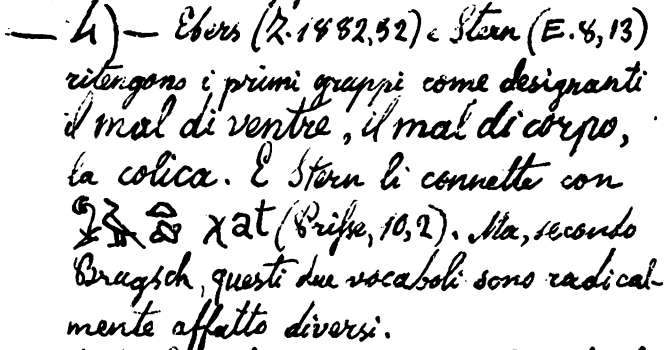 — 4) — Ebers (Z. 1882,52) e Stern (E. 8, 13)
ritengono i primi gruppi come designanti
il mal di ventre, il mal di corpo,
la colica. E Stern li connette con
χat (Prisse, 10, 2). Ma, secondo
Brugsch, questi due vocaboli sono radical-
mente affatto diversi.